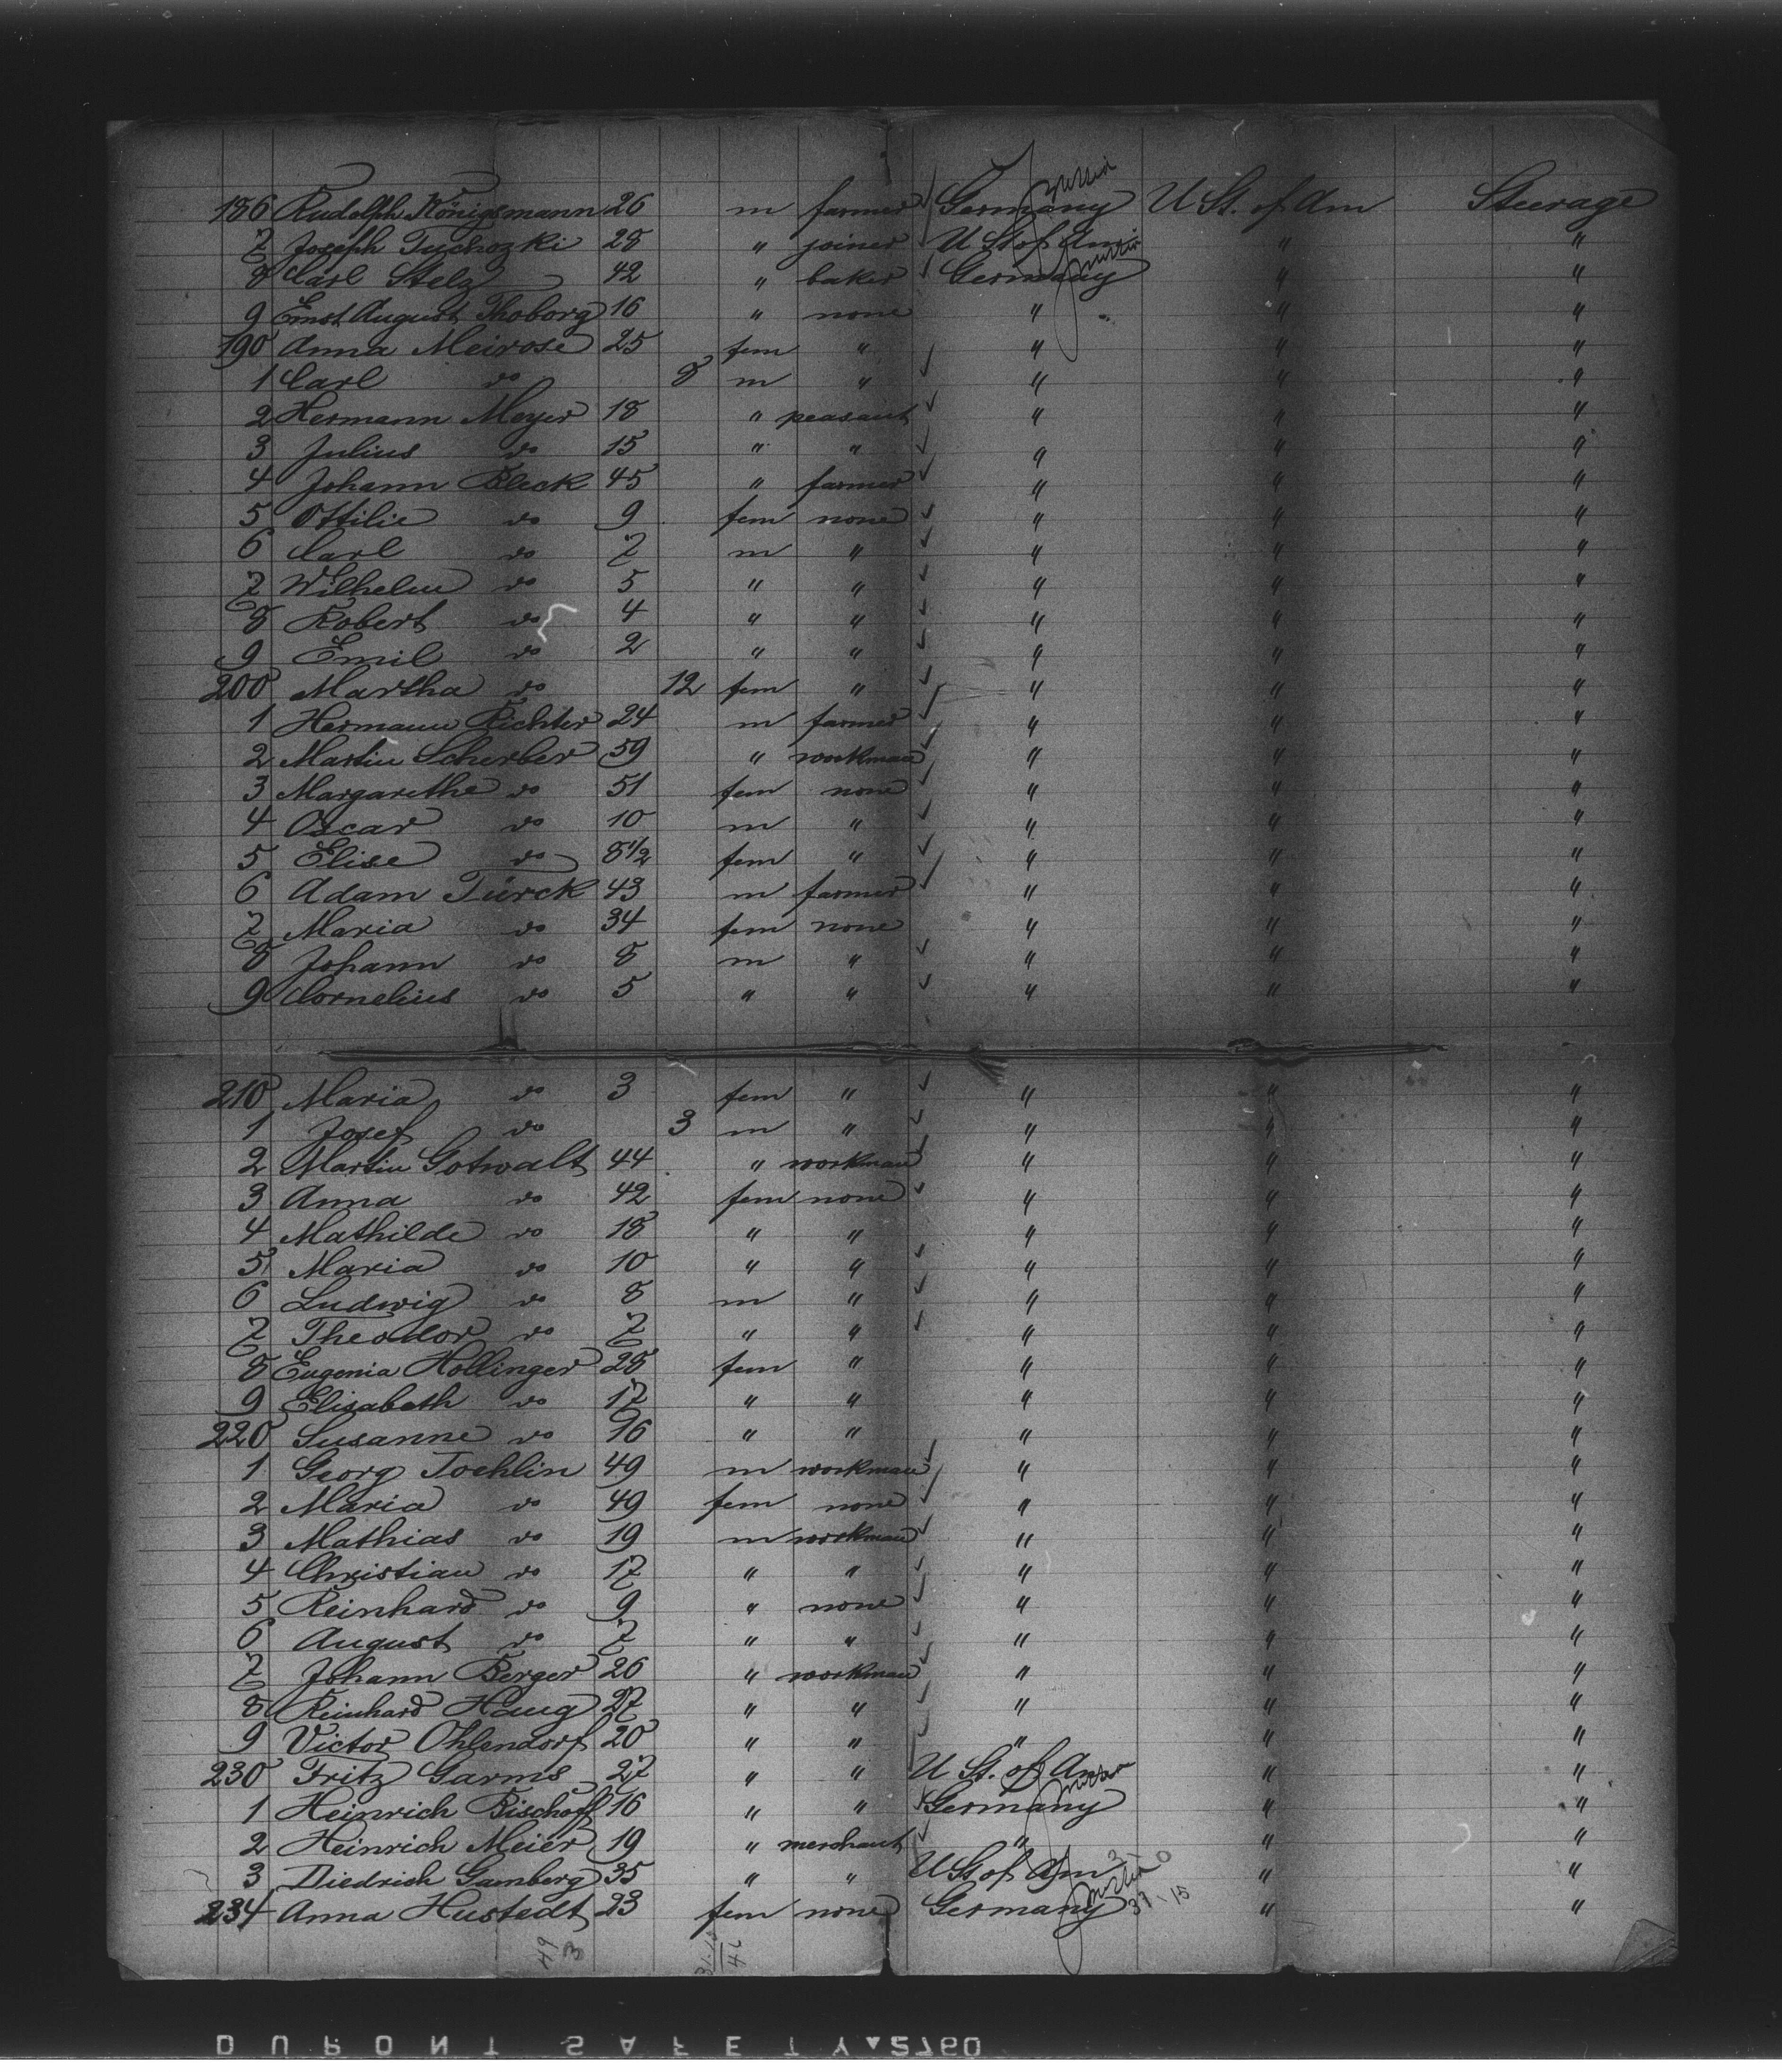 186 Rudolph Königsmann 26 m farmer Germany U St. of Am Steerage
7 Joseph Tuchozki 28 " joiner U St of Am " "
8 Carl Stelz 42 " baker Germany " "
9 Ernst August Thoborg 16 " none " " "
190 Anna Meirose 25 fem " " " "
1 Carl do 8 m " " " "
2 Hermann Meyer 18 " peasant " " "
3 Julius do 15 " " " " "
4 Johann Bleck 45 " farmer " " "
5 Ottilie do 9 fem none " " "
6 Carl do 7 m " " " "
7 Wilhelm do 5 " " " " "
8 Robert do 4 " " " " "
9 Emil do 2 " " " " "
200 Martha do 12 fem " " " "
1 Hermann Richter 24 m farmer " " "
2 Martin Scherber 59 " workman " " "
3 Margarethe do 51 fem none " " "
4 Oscar do 10 m " " " "
5 Elise do 8 1/2 fem " " " "
6 Adam Türck 43 m farmer " " "
7 Maria do 34 fem none " " "
8 Johann do 8 m " " " "
9 Cornelius do 5 " " " " "
210 Maria do 3 fem " " " "
1 Josef do 3 m " " " "
2 Martin Gotwalt 44 " workman " " "
3 Anna do 42 fem none " " "
4 Mathilde do 18 " " " " "
5 Maria do 10 " " " " "
6 Ludwig do 8 m " " " "
7 Theodor do 7 " " " " "
8 Eugenia Hollinger 28 fem " " " "
9 Elisabeth do 17 " " " " "
220 Susanne do 16 " " " " "
1 Georg Toehlin 49 m workman " " "
2 Maria do 49 fem none " " "
3 Mathias do 19 m workman " " "
4 Christian do 17 " " " " "
5 Reinhard do 9 " none " " "
6 August do 7 " " " " "
7 Johann Berger 26 " workman " " "
8 Reinhard Haug 27 " " " " "
9 Victor Ohlendorf 20 " " " " "
230 Fritz Garms 27 " " U St. of Am " "
1 Heinrich Bischoff 16 " " Germany " "
2 Heinrich Meier 19 " merchant " " "
3 Diedrich Gamberg 35 " " U St of Am " "
234 Anna Hustedt 23 fem none Germany " "
49
3
DUPONT SAFETY 2760